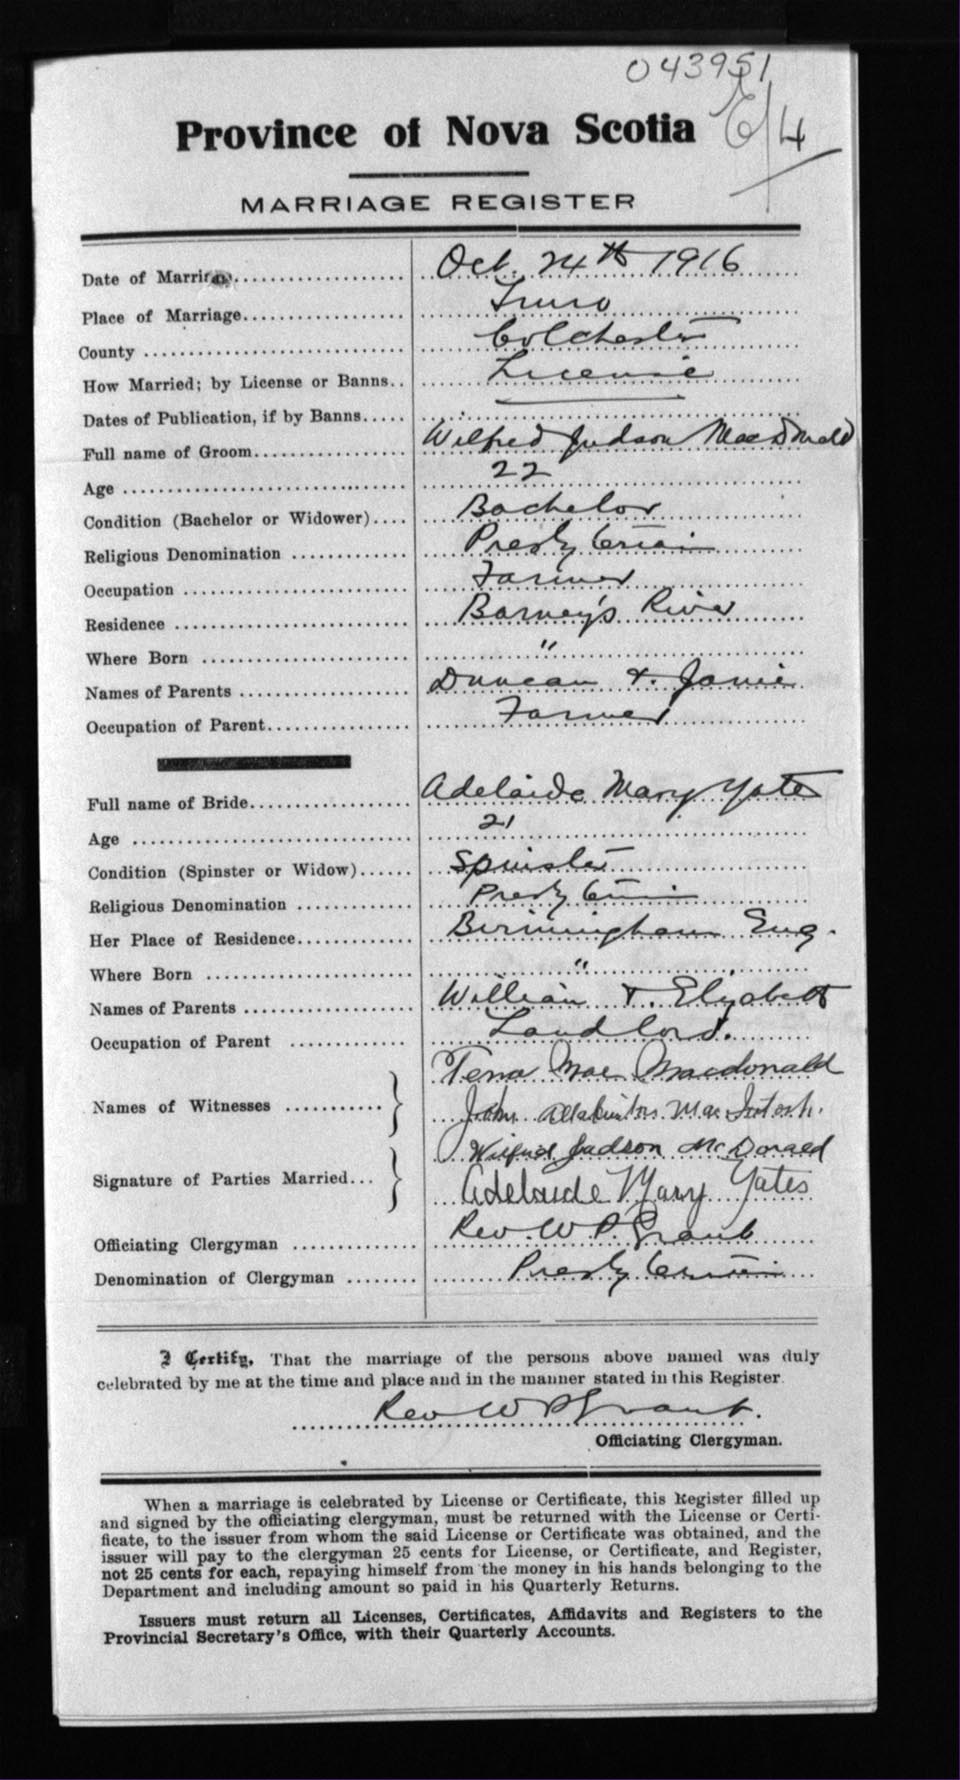 043951
E/4
Province of Nova Scotia
MARRIAGE REGISTER
Date of Marriage.................... Oct. 24th 1916
Place of Marriage.................... Truro
County .................... Colchester
How Married; by License or Banns.. License
Dates of Publication, if by Banns.....
Full name of Groom.................... Wilfred Judson MacDonald
Age .................... 22
Condition (Bachelor or Widower).... Bachelor
Religious Denomination .............. Presbyterian
Occupation .................... Farmer
Residence .................... Barney's River
Where Born .................... "
Names of Parents .................... Duncan & Janie
Occupation of Parent.................... Farmer
Full name of Bride.................... Adelaide Mary Yates
Age .................... 21
Condition (Spinster or Widow)...... Spinster
Religious Denomination .............. Presbyterian
Her Place of Residence.............. Birmingham Eng.
Where Born .................... "
Names of Parents .................... William & Elizabeth
Occupation of Parent .............. Landlord.
Names of Witnesses ............ Tena Mae Macdonald
John MacIntosh.
Signature of Parties Married... Wilfred Judson McDonald
Adelaide Mary Yates
Officiating Clergyman .............. Rev. W. P. Grant
Denomination of Clergyman ........ Presbyterian
I Certify, That the marriage of the persons above named was duly
celebrated by me at the time and place and in the manner stated in this Register.
Rev W P Grant.
Officiating Clergyman.
When a marriage is celebrated by License or Certificate, this Register filled up
and signed by the officiating clergyman, must be returned with the License or Certi-
ficate, to the issuer from whom the said License or Certificate was obtained, and the
issuer will pay to the clergyman 25 cents for License, or Certificate, and Register,
not 25 cents for each, repaying himself from the money in his hands belonging to the
Department and including amount so paid in his Quarterly Returns.
Issuers must return all Licenses, Certificates, Affidavits and Registers to the
Provincial Secretary's Office, with their Quarterly Accounts.